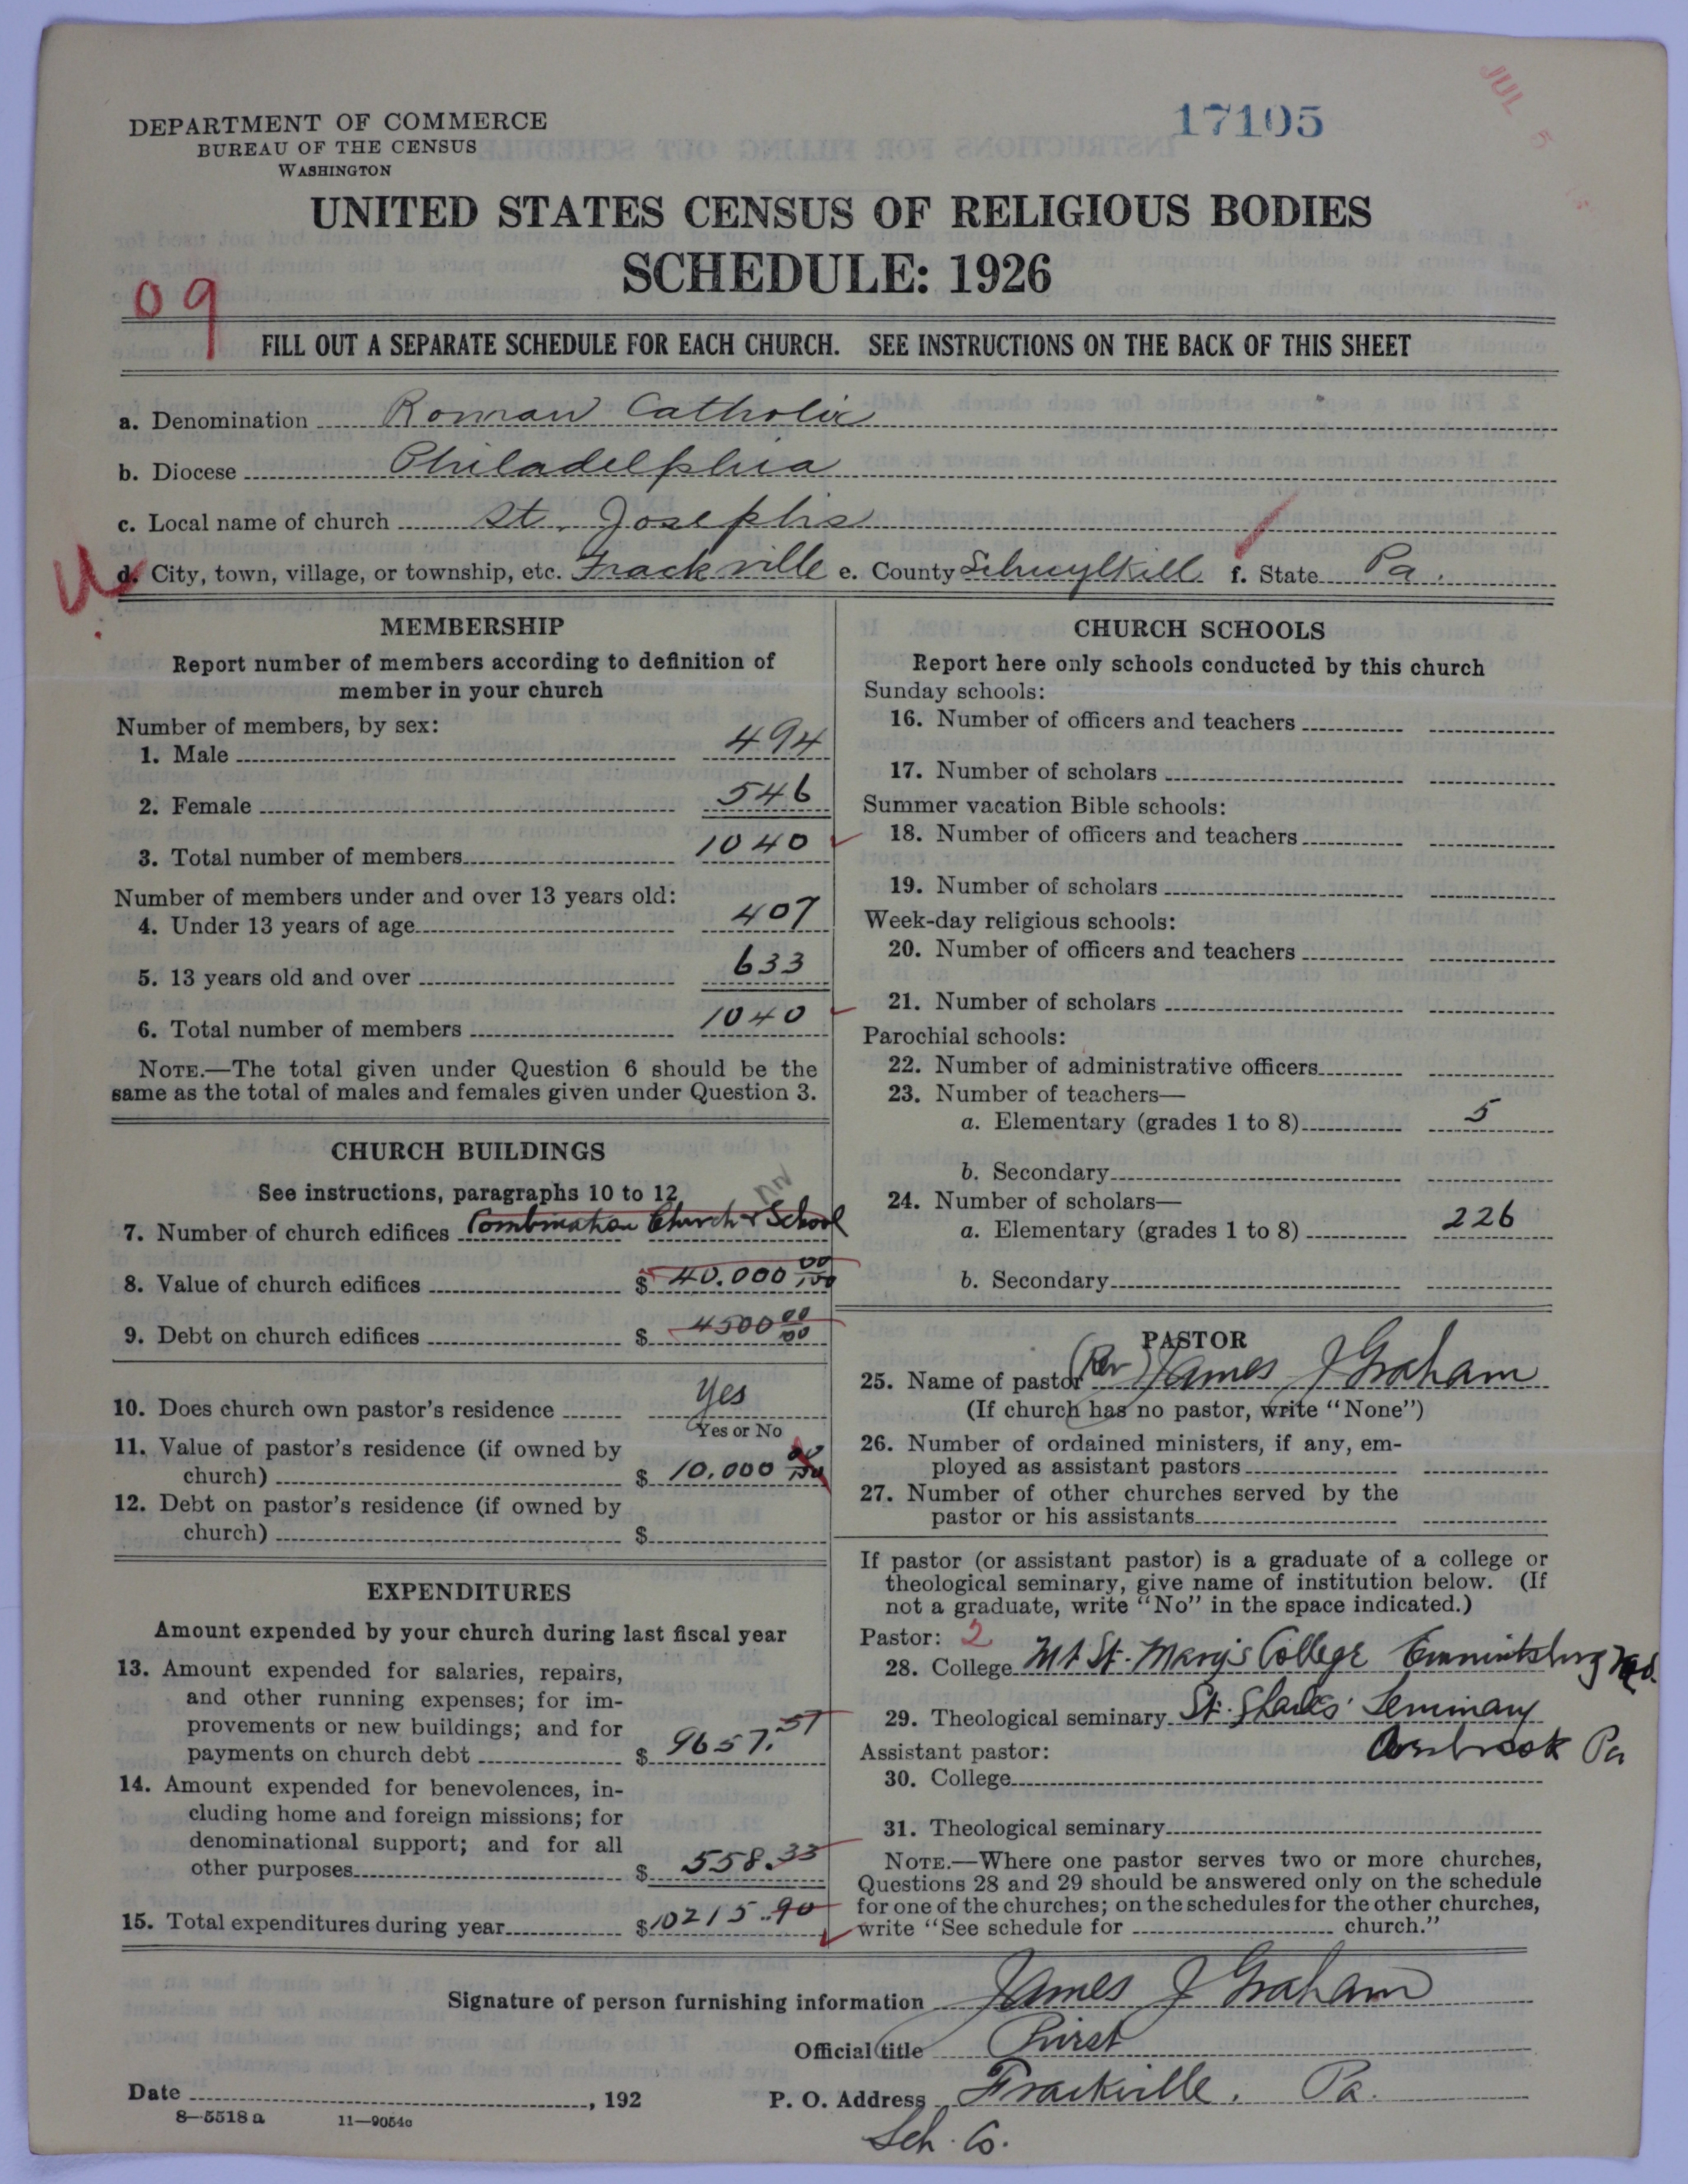 17105
JUL 5
DEPARTMENT OF COMMERCE
BUREAU OF THE CENSUS
WASHINGTON
UNITED STATES CENSUS OF RELIGIOUS BODIES
SCHEDULE: 1926
09
FILL OUT A SEPARATE SCHEDULE FOR EACH CHURCH. SEE INSTRUCTIONS ON THE BACK OF THIS SHEET
a. Denomination Roman Catholic
b. Diocese Philadelphia
c. Local name of church St. Josephs
d. City, town, village, or township, etc. Frackville e. County Schuylkill f. State Pa.
MEMBERSHIP
Report number of members according to definition of
member in your church
Number of members, by sex:
1. Male 494
2. Female 546
3. Total number of members 1040
Number of members under and over 13 years old:
4. Under 13 years of age 407
5. 13 years old and over 633
6. Total number of members 1040
NOTE.—The total given under Question 6 should be the
same as the total of males and females given under Question 3.
CHURCH BUILDINGS
See instructions, paragraphs 10 to 12
7. Number of church edifices Combination Church & School
8. Value of church edifices $ 40.000 00/100
9. Debt on church edifices $ 4500 00/00
10. Does church own pastor's residence Yes
Yes or No
11. Value of pastor's residence (if owned by
church) $ 10.000 00/100
12. Debt on pastor's residence (if owned by
church) $
EXPENDITURES
Amount expended by your church during last fiscal year
13. Amount expended for salaries, repairs,
and other running expenses; for im-
provements or new buildings; and for
payments on church debt $ 9657.57
14. Amount expended for benevolences, in-
cluding home and foreign missions; for
denominational support; and for all
other purposes $ 558.33
15. Total expenditures during year $ 10215.90
CHURCH SCHOOLS
Report here only schools conducted by this church
Sunday schools:
16. Number of officers and teachers
17. Number of scholars
Summer vacation Bible schools:
18. Number of officers and teachers
19. Number of scholars
Week-day religious schools:
20. Number of officers and teachers
21. Number of scholars
Parochial schools:
22. Number of administrative officers
23. Number of teachers—
a. Elementary (grades 1 to 8) 5
b. Secondary
24. Number of scholars—
a. Elementary (grades 1 to 8) 226
b. Secondary
PASTOR
25. Name of pastor (Rev) James J Graham
(If church has no pastor, write "None")
26. Number of ordained ministers, if any, em-
ployed as assistant pastors
27. Number of other churches served by the
pastor or his assistants
If pastor (or assistant pastor) is a graduate of a college or
theological seminary, give name of institution below. (If
not a graduate, write "No" in the space indicated.)
Pastor: 2
28. College Mt St. Mary's College Emmitsburg Md.
29. Theological seminary St. Charles' Seminary
Overbrook Pa
Assistant pastor:
30. College
31. Theological seminary
NOTE.—Where one pastor serves two or more churches,
Questions 28 and 29 should be answered only on the schedule
for one of the churches; on the schedules for the other churches,
write "See schedule for church."
Signature of person furnishing information James J Graham
Official title
Date , 192 P. O. Address Frackville, Pa.
8—5518 a 11—9054c
Sch. Co.